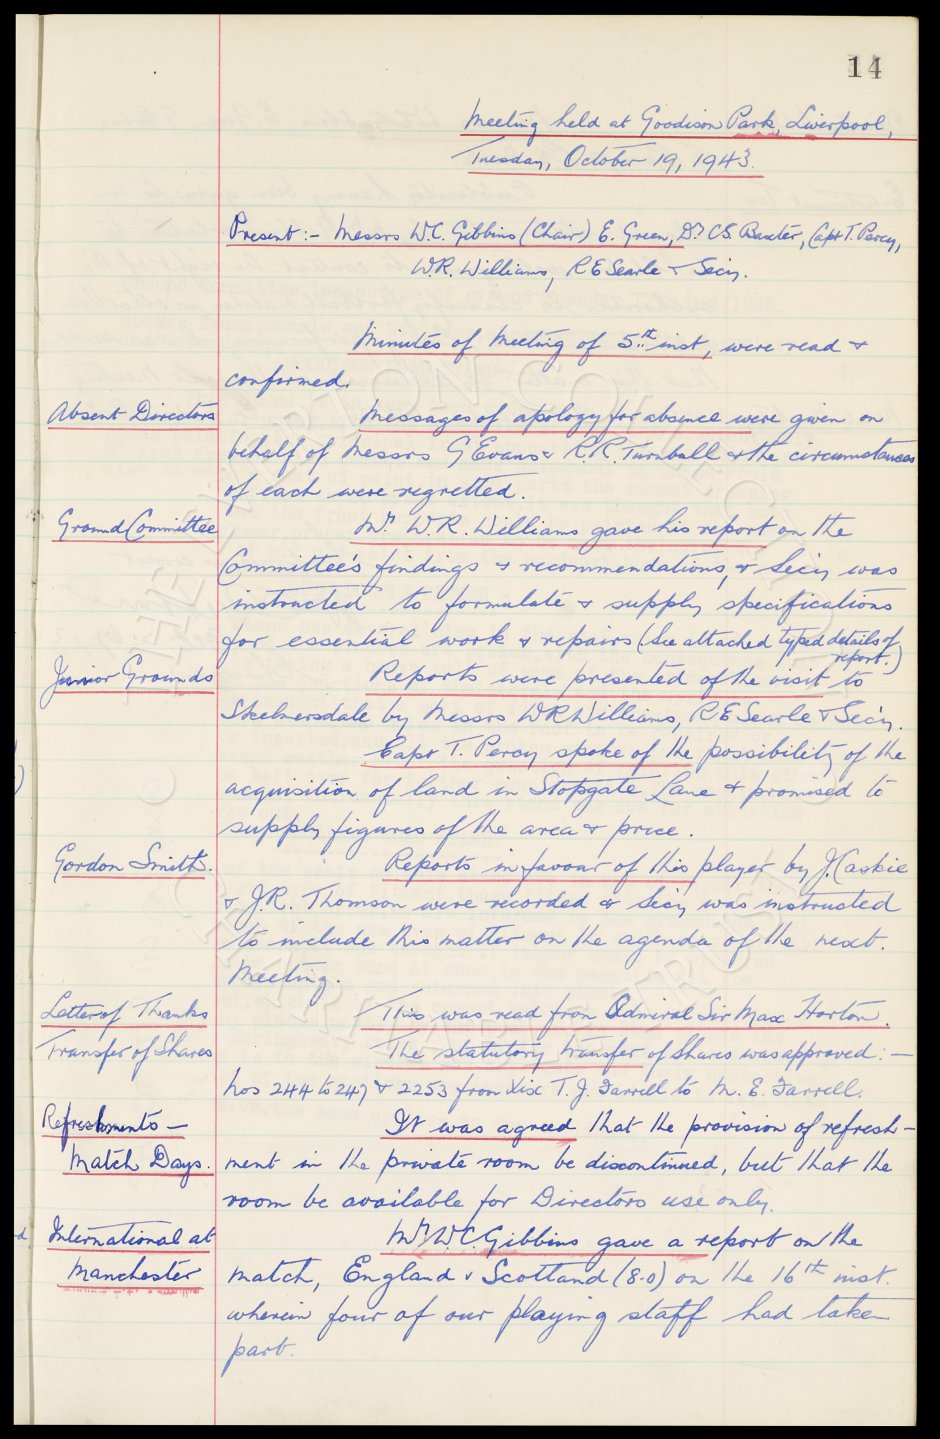 14
Meeting held at Goodison Park, Liverpool,
Tuesday, October 19, 1943.
Present:- Messrs W.C. Gibbins (Chair) E. Green, Dr C.S. Baxter, Capt T. Percy,
W.R. Williams, R E Searle & Secy.
Minutes of Meeting of 5th inst, were read &
confirmed.
Absent Directors
Messages of apology for absence were given on
behalf of Messrs G Evans & R.R. Turnbull & the circumstances
of each were regretted.
Ground Committee
Mr W.R. Williams gave his report on the
Committee's findings & recommendations, & Secy was
instructed to formulate & supply specifications
for essential work & repairs (See attached typed details of
report.)
Junior Grounds
Reports were presented of the visit to
Skelmersdale by Messrs W R Williams, R E Searle & Sec'y.
Capt T. Percy spoke of the possibility of the
acquisition of land in Stopgate Lane & promised to
supply figures of the area & price.
Gordon Smith.
Reports in favour of this player by J. Caskie
& J.R. Thomson were recorded & Secy was instructed
to include this matter on the agenda of the next.
Meeting.
Letter of Thanks
This was read from Admiral Sir Max Horton.
Transfer of Shares
The statutory transfer of Shares was approved:-
Nos 244 to 247 & 2253 from Exix T. J. Farrell to M. E. Farrell.
Refreshments -
Match Days.
It was agreed that the provision of refresh-
ment in the private room be discontinued, but that the
room be available for Directors use only.
International at
Manchester
Mr W.C. Gibbins gave a report on the
match, England v Scotland (8.0) on the 16th inst.
wherein four of our playing staff had taken
part.